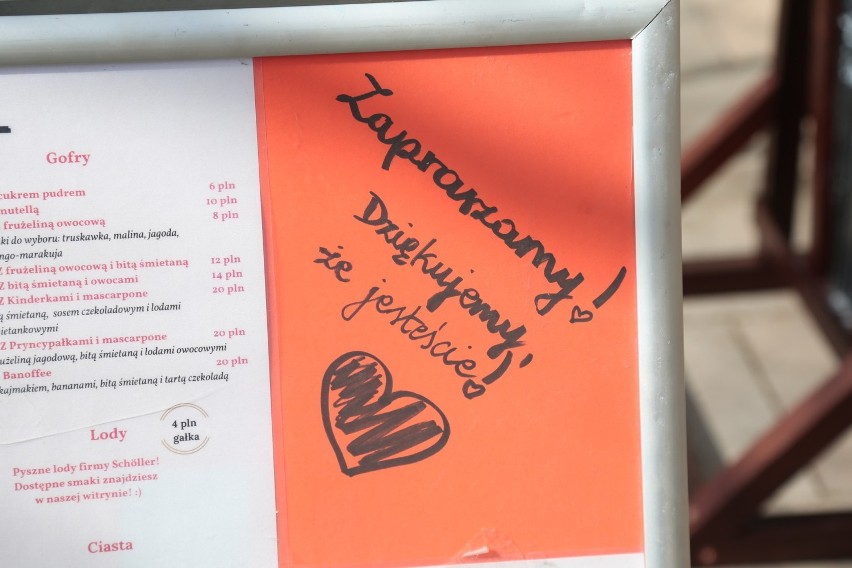 Gofry
cukrem pudrem 6 pln
nutellą 10 pln
frużeliną owocową 8 pln
do wyboru: truskawka, malina, jagoda,
Z frużeliną owocową i bitą śmietaną 12 pln
Z bitą śmietaną i owocami 14 pln
Z Kinderkami i mascarpone 20 pln
śmietaną, sosem czekoladowym i lodami
Z Pryncypałkami i mascarpone 20 pln
jagodową, bitą śmietaną i lodami owocowymi
Banoffee 20 pln
kajmakiem, bananami, bitą śmietaną i tartą czekoladą
Lody
4 pln
gałka
Pyszne lody firmy Schöller!
Dostępne smaki znajdziesz
w naszej witrynie! :)
Ciasta
Zapraszamy!
Dziękujemy,
że jesteście!